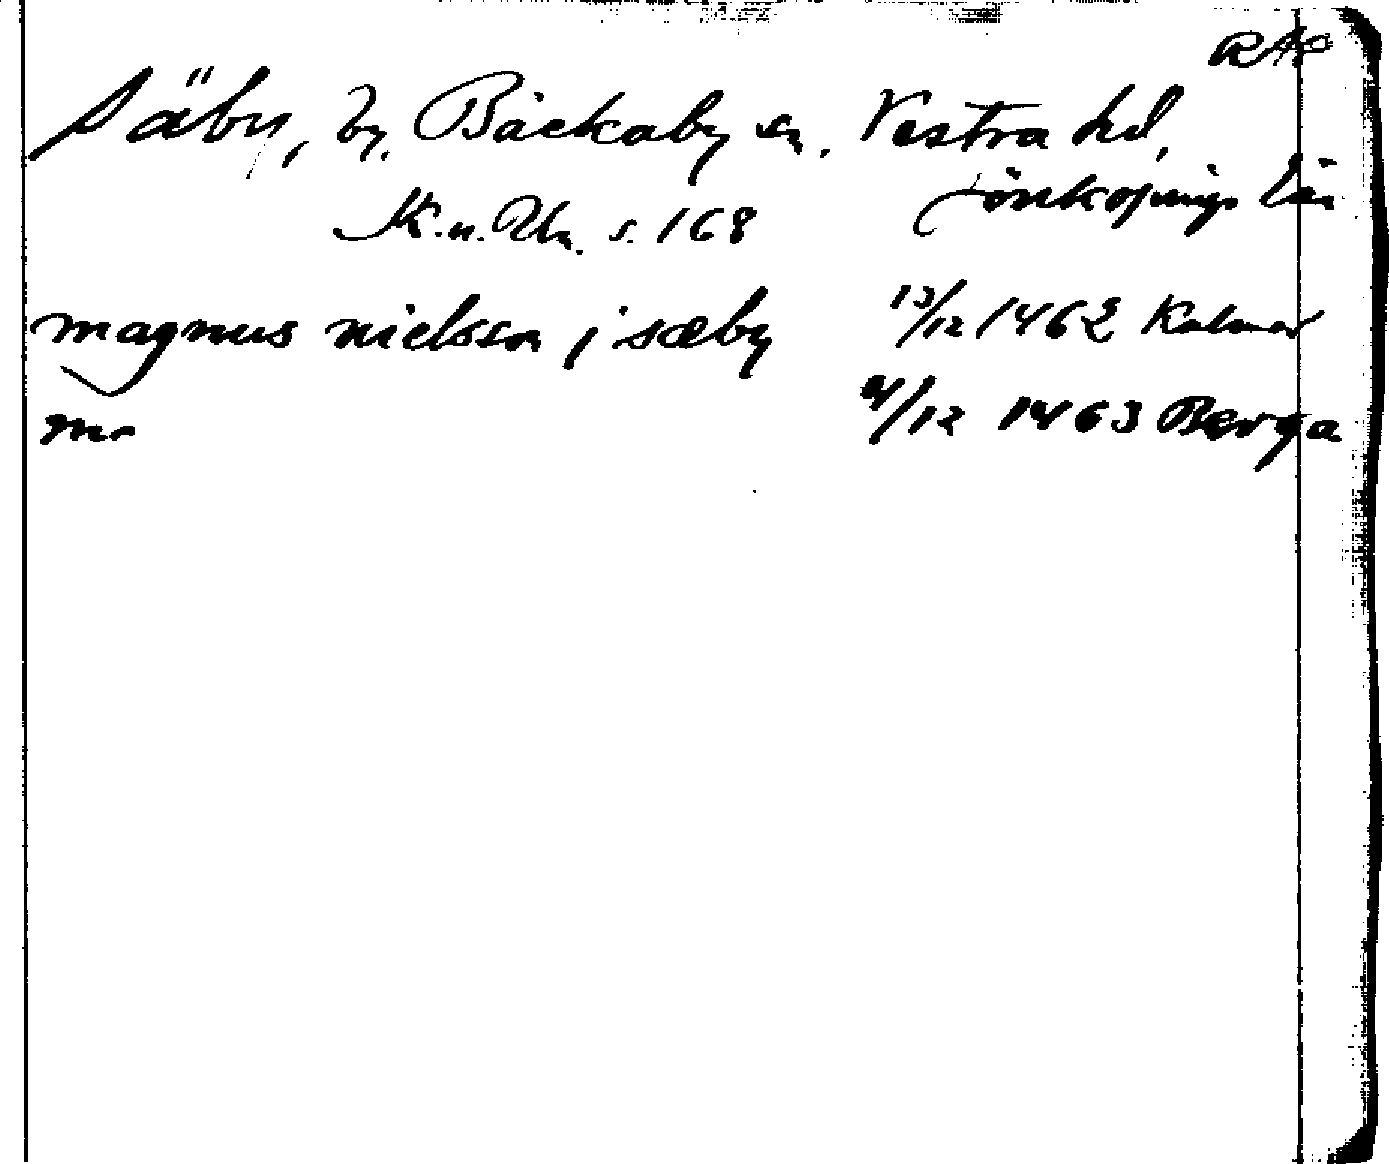 RAP
Säby, by, Bäckaby sn. Vestra hd,
Jönköpings län
K.u.Un. s. 168
magnus nielsson j sæby 13/12 1462 Kalmar
mn 4/12 1463 Berga